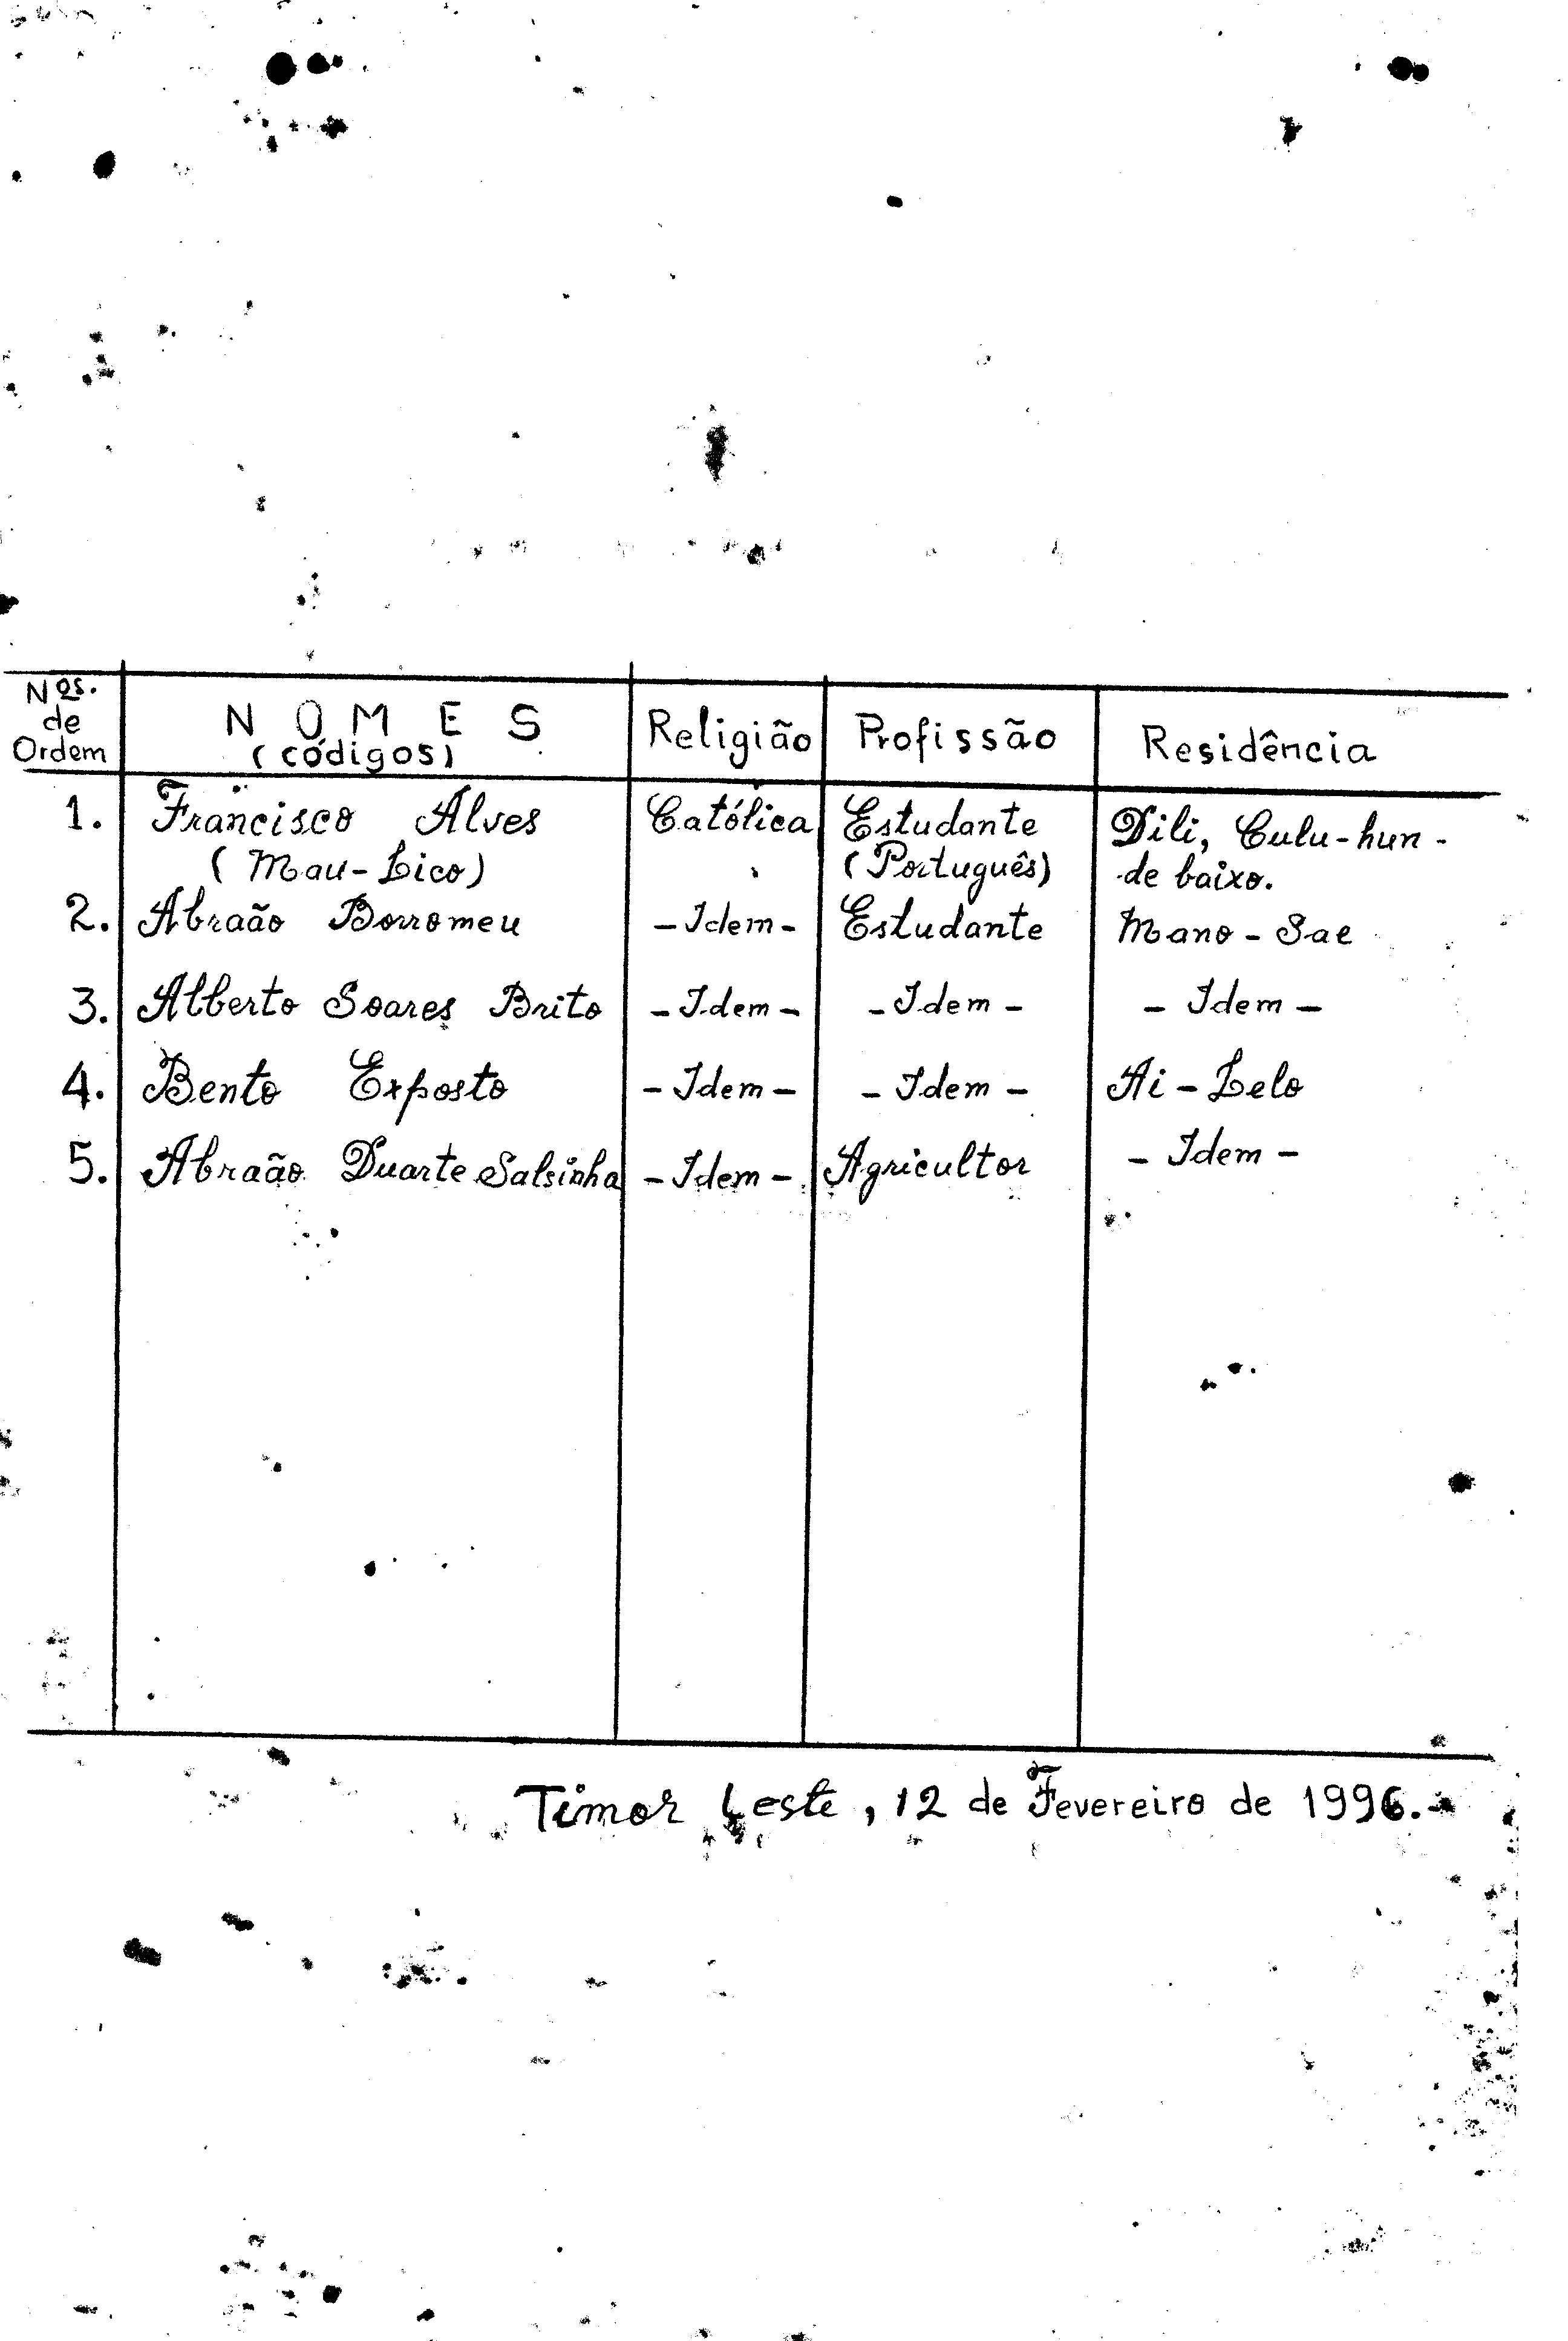 Nºs. de Ordem | N O M E S (códigos) | Religião | Profissão | Residência
1. Francisco Alves Católica Estudante Dili, Culu-hun-
(Mau-Lico) (Português) de baixo.
2. Abraão Borromeu -Idem- Estudante Mano-Sae
3. Alberto Soares Brito -Idem- -Idem- -Idem-
4. Bento Exposto -Idem- -Idem- Ai-Lelo
5. Abraão Duarte Salsinha -Idem- Agricultor -Idem-
Timor Leste, 12 de Fevereiro de 1996.